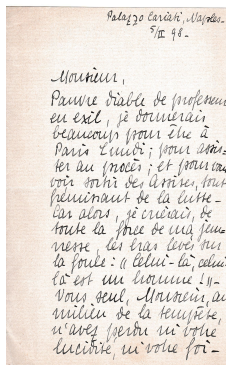 Palazzo Cariati, Naples -
5/II 98 -
Monsieur,
Pauvre diable de professeur
en exil, je donnerais
beaucoup pour être à
Paris Lundi ; pour assis-
ter au procès ; et pour vous
voir sortir des assises, tout
frémissant de la lutte -
Car alors, je crierais, de
toute la force de ma jeu-
nesse, les bras levés sur
la foule : "Celui-là, celui-
là est un homme !" -
Vous seul, Monsieur, au
milieu de la tempête,
n'avez perdu ni votre
lucidité, ni votre foi -